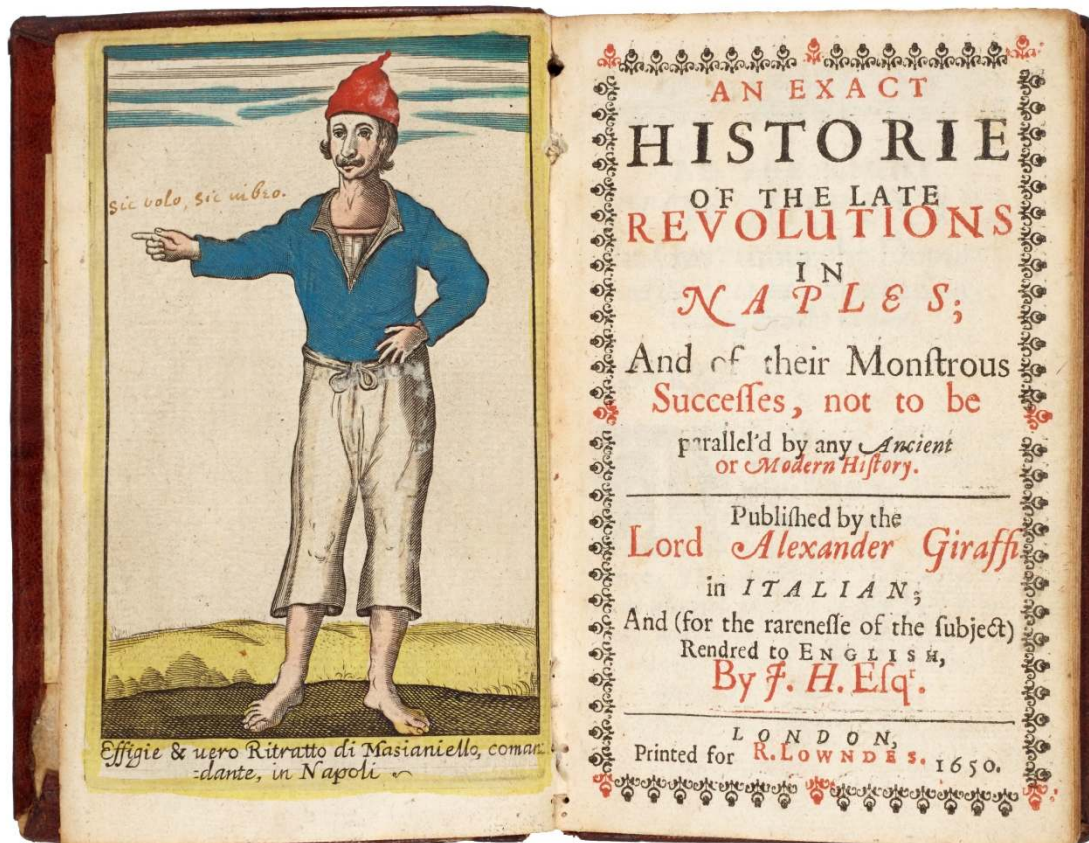 Sic volo, sic iubeo.
Effigie & uero Ritratto di Masianiello, coman
-dante, in Napoli
AN EXACT
HISTORIE
OF THE LATE
REVOLUTIONS
IN
NAPLES;
And of their Monſtrous
Succeſſes, not to be
parallel'd by any Ancient
or Modern Hiſtory.
Publiſhed by the
Lord Alexander Giraffi
in ITALIAN;
And (for the rareneſſe of the ſubject)
Rendred to ENGLISH,
By J. H. Eſqr.
LONDON,
Printed for R. LOWNDES. 1650.